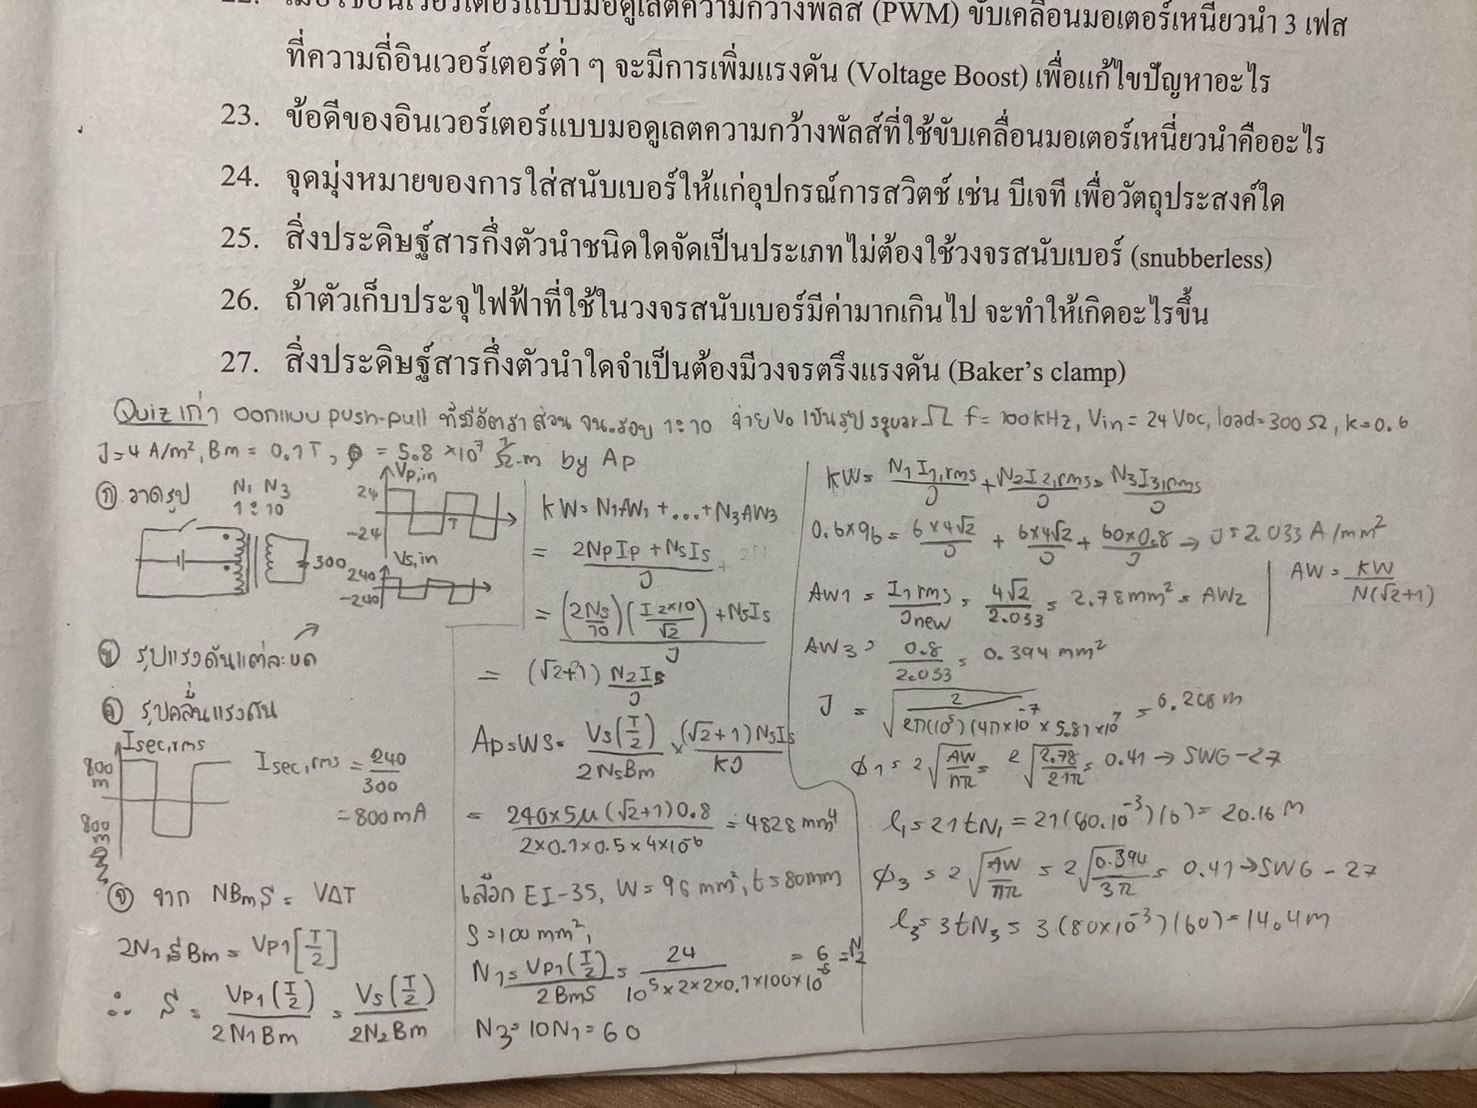 22. เมื่อใช้อินเวอร์เตอร์แบบมอดูเลตความกว้างพัลส์ (PWM) ขับเคลื่อนมอเตอร์เหนี่ยวนำ 3 เฟส
ที่ความถี่อินเวอร์เตอร์ต่ำ ๆ จะมีการเพิ่มแรงดัน (Voltage Boost) เพื่อแก้ไขปัญหาอะไร
23. ข้อดีของอินเวอร์เตอร์แบบมอดูเลตความกว้างพัลส์ที่ใช้ขับเคลื่อนมอเตอร์เหนี่ยวนำคืออะไร
24. จุดมุ่งหมายของการใส่สนับเบอร์ให้แก่อุปกรณ์การสวิตช์ เช่น บีเจที เพื่อวัตถุประสงค์ใด
25. สิ่งประดิษฐ์สารกึ่งตัวนำชนิดใดจัดเป็นประเภทไม่ต้องใช้วงจรสนับเบอร์ (snubberless)
26. ถ้าตัวเก็บประจุไฟฟ้าที่ใช้ในวงจรสนับเบอร์มีค่ามากเกินไป จะทำให้เกิดอะไรขึ้น
27. สิ่งประดิษฐ์สารกึ่งตัวนำใดจำเป็นต้องมีวงจรตรึงแรงดัน (Baker's clamp)
Quiz เก่า ออกแบบ push-pull ที่มีอัตราส่วน จน.รอบ 1:10 จ่าย Vo เป็นรูป squar f = 100 kHz, Vin = 24 VDC, load = 300 Ω, k = 0.6
J = 4 A/m², Bm = 0.1 T, ρ = 5.8 × 10⁷ 1/Ω.m by Ap
ก วาดรูป
N1 N3
1 : 10
300
Vp,in
24
-24
T
Vs,in
240
-240
ข รูปแรงดันแต่ละขด
ค รูปคลื่นแรงดัน
Isec,rms
800 m
800 m
Isec,rms = 240/300
= 800 mA
ง จาก NBmS = VΔT
2N1SBm = Vp1[T/2]
∴ S = Vp1(T/2)/2N1Bm = Vs(T/2)/2N2Bm
KW = N1AW1 + ... + N3AW3
= (2NpIp + NsIs)/J
= ((2Ns/10)(I2×10/√2) + NsIs)/J
= (√2+1) N2Is/J
Ap = WS = Vs(T/2)/2NsBm × (√2+1)NsIs/KJ
= 240×5μ(√2+1)0.8/2×0.1×0.5×4×10⁶ = 4828 mm⁴
เลือก EI-35, W = 96 mm², t = 80mm
S = 100 mm²,
N1 = Vp1(T/2)/2BmS = 24/10⁵×2×2×0.1×100×10⁻⁶ = 6 = N2
N3 = 10N1 = 60
KW = N1I1,rms/J + N2I2,rms/J + N3I3,rms/J
0.6×96 = 6×4√2/J + 6×4√2/J + 60×0.8/J → J = 2.033 A/mm²
AW1 = I1rms/Jnew = 4√2/2.033 = 2.78mm² = AW2
AW = KW/N(√2+1)
AW3 = 0.8/2.033 = 0.394 mm²
J = √(2/2π(10⁵)(4π×10⁻⁷ × 5.81×10⁷)) = 0.208 m
φ1 = 2√(AW/nπ) = 2√(2.78/21π) = 0.41 → SWG-27
l1 = 21tN1 = 21(80.10⁻³)(6) = 20.16 m
φ3 = 2√(AW/nπ) = 2√(0.394/3π) = 0.41 → SWG-27
l3 = 3tN3 = 3(80×10⁻³)(60) = 14.4m